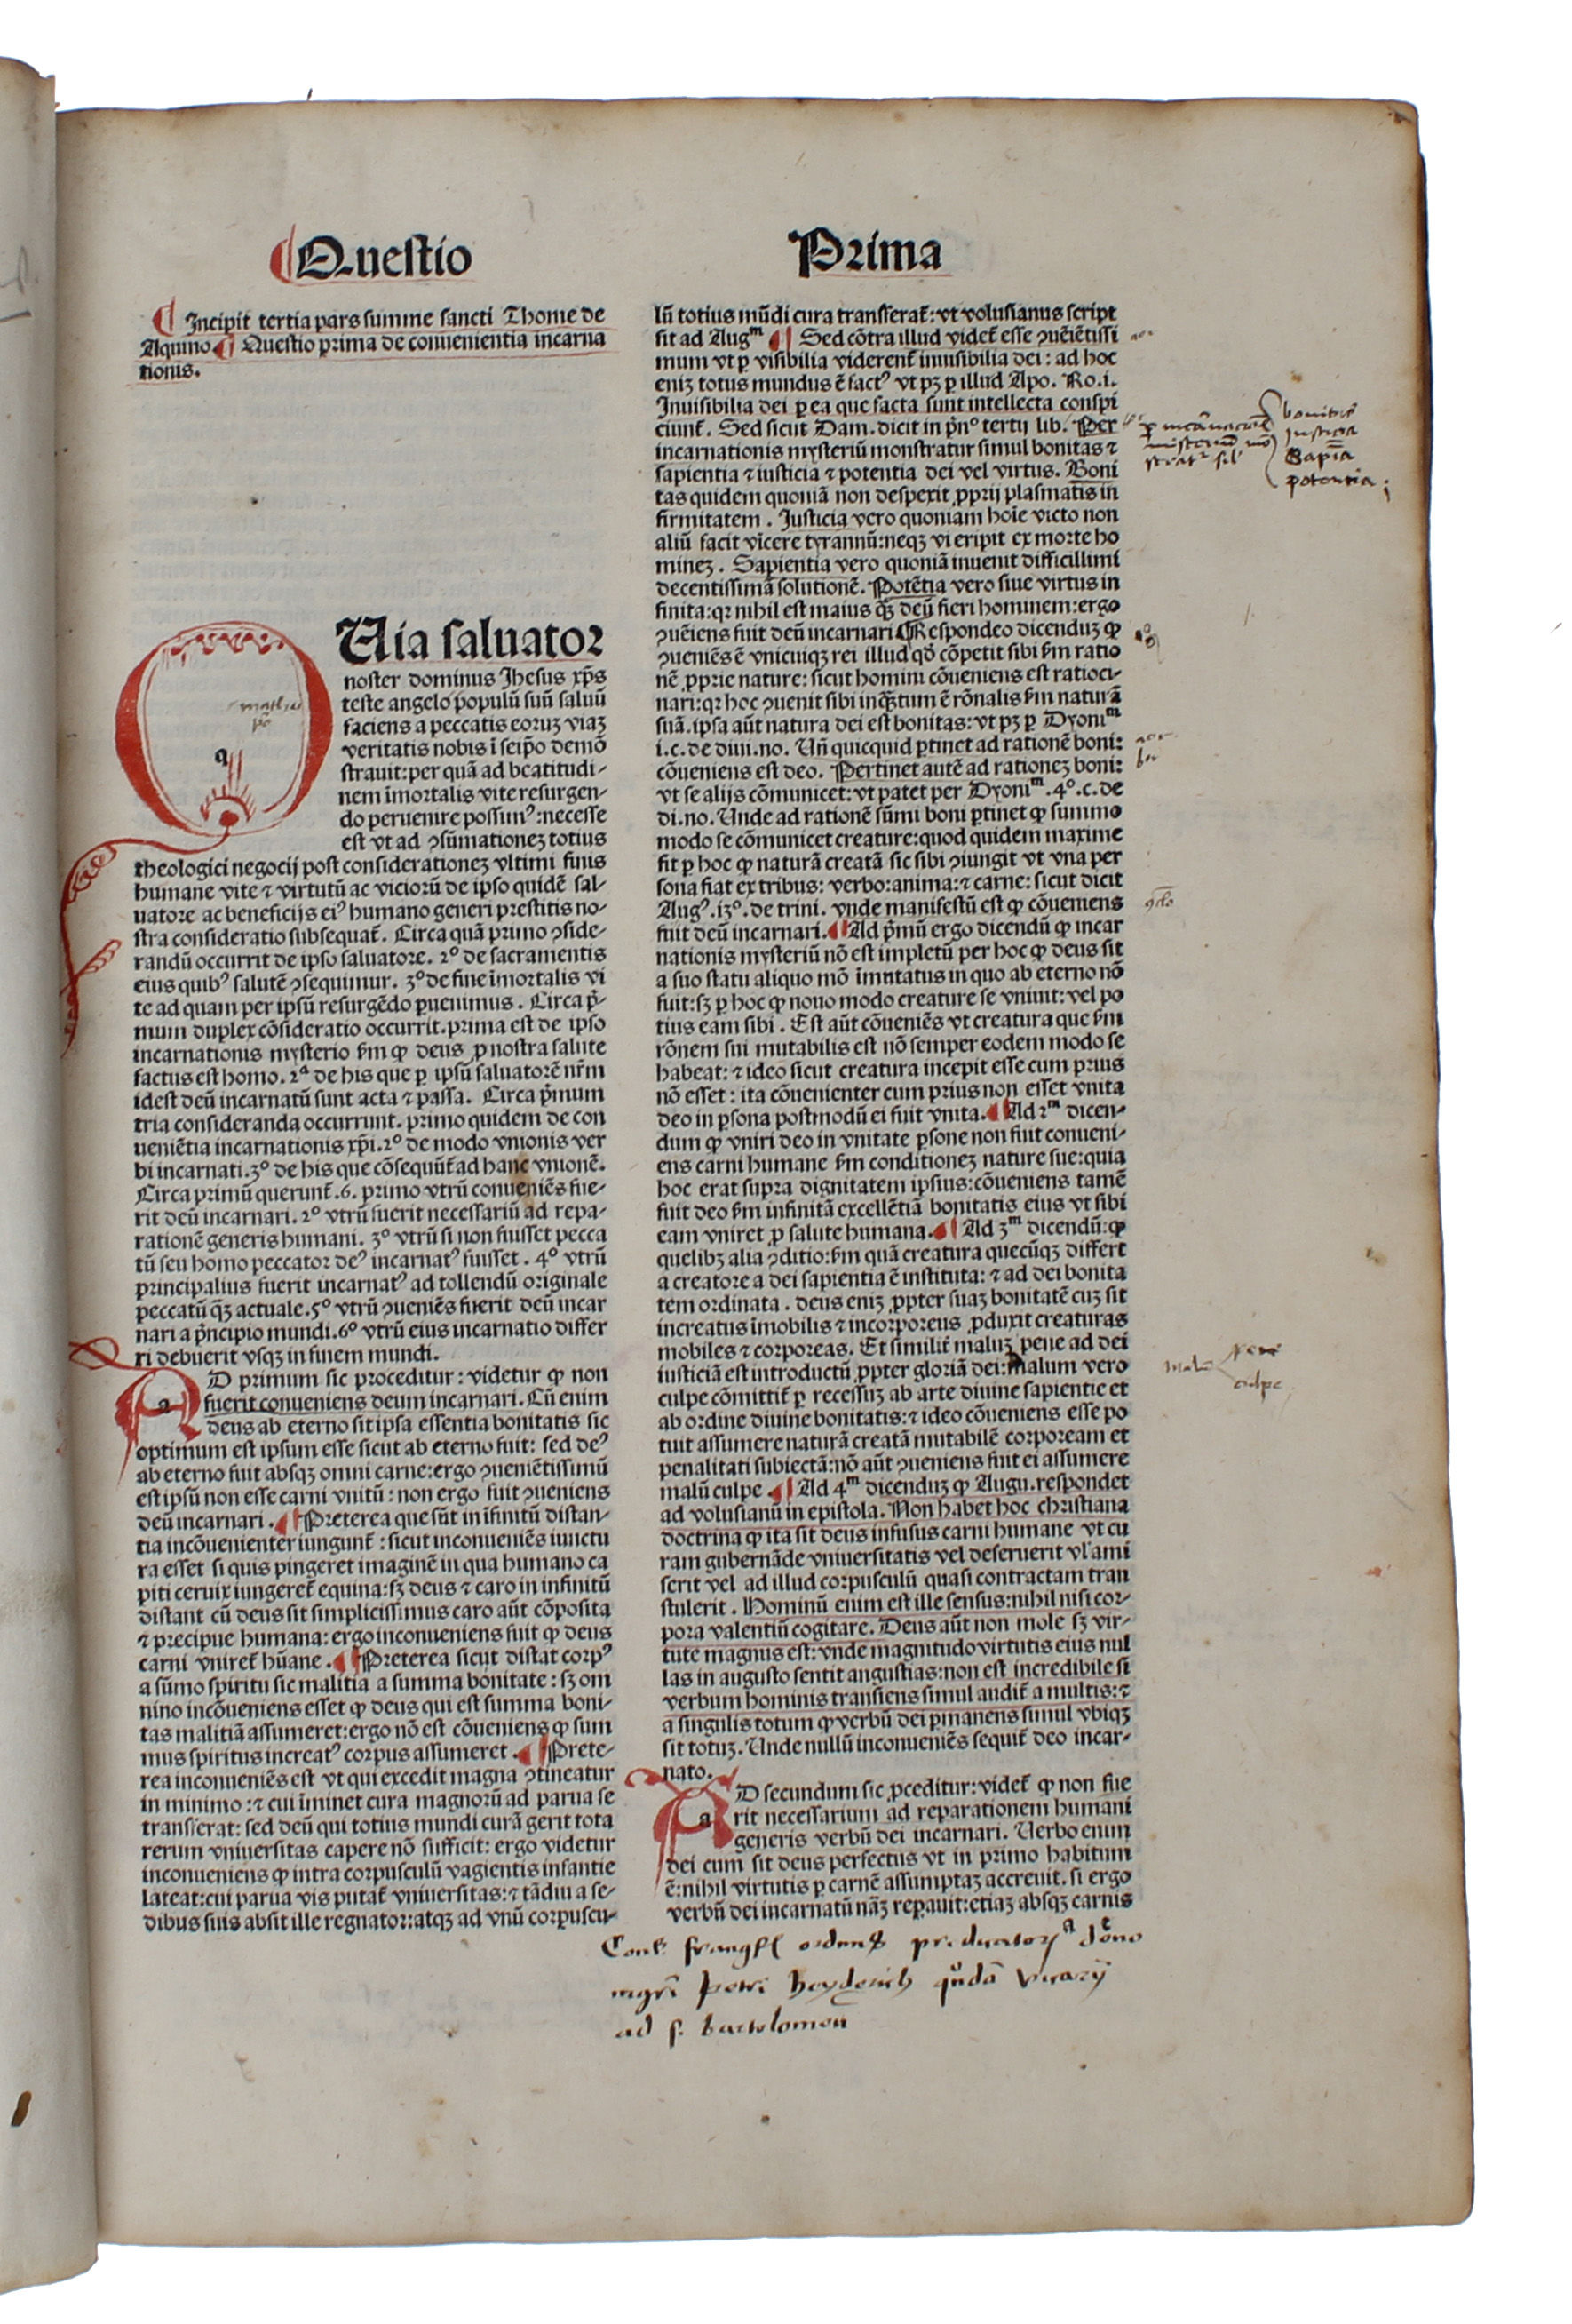 Questio
Prima
¶ Incipit tertia pars summe sancti Thome de
Aquino ¶ Questio prima de conuenientia incarna
tionis.
Uia saluator
noster dominus Jhesus xp̄s
teste angelo populū suū saluū
faciens a peccatis eoruꝫ viaꝫ
veritatis nobis ī seip̄o demō
strauit: per quā ad beatitudi-
nem īmortalis vite resurgen-
do peruenire possunꝰ: necesse
est vt ad ↄsūmationeꝫ totius
theologici negocij post considerationeꝫ vltimi finis
humane vite ⁊ virtutū ac viciorū de ipso quidē sal-
uatore ac beneficijs eiꝰ humano generi prestitis no-
stra consideratio subsequat̄. Circa quā primo ↄside-
randū occurrit de ipso saluatore. 2º de sacramentis
eius quibꝰ salutē ↄsequimur. 3º de fine īmortalis vi
te ad quam per ipsū resurgēdo ꝑuenimus. Circa p̄-
mum duplex cōsideratio occurrit. prima est de ipso
incarnationis mysterio ẜm ꝙ deus ꝓ nostra salute
factus est homo. 2ª de his que ꝑ ipsū saluatorē nr̄m
idest deū incarnatū sunt acta ⁊ passa. Circa p̄mum
tria consideranda occurrunt. primo quidem de con
ueniētia incarnationis xp̄i. 2º de modo vnionis ver
bi incarnati. 3º de his que cōsequūt̄ ad hanc vnionē.
Circa primū querunt̄ .6. primo vtrū conueniēs fue-
rit deū incarnari. 2º vtrū fuerit necessariū ad repa-
rationē generis humani. 3º vtrū si non fuisset pecca
tū seu homo peccator deꝰ incarnatꝰ fuisset. 4º vtrū
principalius fuerit incarnatꝰ ad tollendū originale
peccatū q̄ꝫ actuale. 5º vtrū ↄueniēs fuerit deū incar
nari a p̄ncipio mundi. 6º vtrū eius incarnatio differ
ri debuerit vsqꝫ in finem mundi.
aD primum sic proceditur: videtur ꝙ non
fuerit conueniens deum incarnari. Cū enim
deus ab eterno sit ipsa essentia bonitatis sic
optimum est ipsum esse sicut ab eterno fuit: sed deꝰ
ab eterno fuit absqꝫ omni carne: ergo ↄueniētissimū
est ipsū non esse carni vnitū: non ergo fuit ↄueniens
deū incarnari. ¶ Preterea que sūt in īfinitū distan-
tia incōuenienter iungunt̄: sicut inconueniēs iunctu
ra esset si quis pingeret imaginē in qua humano ca
piti ceruix iungeret̄ equina: sꝫ deus ⁊ caro in infinitū
distant cū deus sit simplicissimus caro aūt cōposita
⁊ precipue humana: ergo inconueniens fuit ꝙ deus
carni vniret̄ hūane. ¶ Preterea sicut distat corpꝰ
a sūmo spiritu sic malitia a summa bonitate: sꝫ om
nino incōueniens esset ꝙ deus qui est summa boni-
tas malitiā assumeret: ergo nō est cōueniens ꝙ sum
mus spiritus increatꝰ corpus assumeret. ¶ Prete-
rea inconueniēs est vt qui excedit magna ↄtineatur
in minimo: ⁊ cui īminet cura magnorū ad parua se
transferat: sed deū qui totius mundi curā gerit tota
rerum vniuersitas capere nō sufficit: ergo videtur
inconueniens ꝙ intra corpusculū vagientis infantie
lateat: cui parua vis putat̄ vniuersitas: ⁊ tādiu a se-
dibus suis absit ille regnator: atqꝫ ad vnū corpuscu-
lū totius mūdi cura transferat̄: vt volusianus script
sit ad Augᵐ ¶ Sed cōtra illud videt̄ esse ↄuēiētissi
mum vt ꝑ visibilia viderent̄ inuisibilia dei: ad hoc
eniꝫ totus mundus ē factꝰ vt pꝫ ꝑ illud Apo. Ro.i.
Inuisibilia dei ꝑ ea que facta sunt intellecta conspi
ciunt̄. Sed sicut Dam. dicit in p̄nº tertij lib. Per
incarnationis mysteriū monstratur simul bonitas ⁊
sapientia ⁊ iusticia ⁊ potentia dei vel virtus. Boni
tas quidem quoniā non despexit ꝓprij plasmatis in
firmitatem. Justicia vero quoniam hoīe victo non
aliū facit vīcere tyrannū: neqꝫ vi eripit ex morte ho
mineꝫ. Sapientia vero quoniā inuenit difficillimi
decentissimā solutionē. Potētia vero siue virtus in
finita: qꝛ nihil est maius q̄ꝫ deū fieri hominem: ergo
ↄuēiens fuit deū incarnari ¶ Respondeo dicenduꝫ ꝙ
ↄueniēs ē vnicuiqꝫ rei illud qd̄ cōpetit sibi ẜm ratio
nē ꝓprie nature: sicut homini cōueniens est ratioci-
nari: qꝛ hoc ↄuenit sibi inq̄ꝫtum ē rōnalis ẜm naturā
suā. ipsa aūt natura dei est bonitas: vt pꝫ ꝑ Dyoniᵐ
i.c. de diui. no. Un̄ quicquid ꝑtinet ad rationē boni:
cōueniens est deo. Pertinet autē ad rationeꝫ boni:
vt se alijs cōmunicet: vt patet per Dyoniᵐ. 4º.c. de
di. no. Unde ad rationē sūmi boni ꝑtinet ꝙ summo
modo se cōmunicet creature: quod quidem maxime
fit ꝑ hoc ꝙ naturā creatā sic sibi ↄiungit vt vna per
sona fiat ex tribus: verbo: anima: ⁊ carne: sicut dicit
Augꝰ. i3º. de trini. vnde manifestū est ꝙ cōueniens
fuit deū incarnari. ¶ Ad p̄mū ergo dicendū ꝙ incar
nationis mysteriū nō est impletū per hoc ꝙ deus sit
a suo statu aliquo mō īmutatus in quo ab eterno nō
fuit: sꝫ ꝑ hoc ꝙ nouo modo creature se vniuit: vel po
tius eam sibi. Est aūt cōueniēs vt creatura que ẜm
rōnem sui mutabilis est nō semper eodem modo se
habeat: ⁊ ideo sicut creatura incepit esse cum prius
nō esset: ita cōuenienter cum prius non esset vnita
deo in ꝑsona postmodū ei fuit vnita. ¶ Ad 2ᵐ dicen-
dum ꝙ vniri deo in vnitate ꝑsone non fuit conueni-
ens carni humane ẜm conditioneꝫ nature sue: quia
hoc erat supra dignitatem ipsius: cōueniens tamē
fuit deo ẜm infinitā excellētiā bonitatis eius vt sibi
eam vniret ꝓ salute humana. ¶ Ad 3ᵐ dicendū: ꝙ
quelibꝫ alia ↄditio: ẜm quā creatura quecūqꝫ differt
a creatore a dei sapientia ē instituta: ⁊ ad dei bonita
tem ordinata. deus eniꝫ ꝓpter suaꝫ bonitatē cuꝫ sit
increatus īmobilis ⁊ incorporeus ꝓduxit creaturas
mobiles ⁊ corporeas. Et similit̄ maluꝫ pene ad dei
iusticiā est introductū ꝓpter gloriā dei: malum vero
culpe cōmittit̄ ꝑ recessuꝫ ab arte diuine sapientie et
ab ordine diuine bonitatis: ⁊ ideo cōueniens esse po
tuit assumere naturā creatā mutabilē corpoream et
penalitati subiectā: nō aūt ↄueniens fuit ei assumere
malū culpe. ¶ Ad 4ᵐ dicenduꝫ ꝙ Augu. respondet
ad volusianū in epistola. Non habet hoc christiana
doctrina ꝙ ita sit deus infusus carni humane vt cu
ram gubernāde vniuersitatis vel deseruerit vl' ami
serit vel ad illud corpusculū quasi contractam tran
stulerit. Hominū enim est ille sensus: nihil nisi cor-
pora valentiū cogitare. Deus aūt non mole sꝫ vir-
tute magnus est: vnde magnitudo virtutis eius nul
las in augusto sentit angustias: non est incredibile si
verbum hominis transiens simul audit̄ a multis: ⁊
a singulis totum ꝙ verbū dei ꝑmanens simul vbiqꝫ
sit totuꝫ. Unde nullū inconueniēs sequit̄ deo incar-
nato.
aD secundum sic ꝓceditur: videt̄ ꝙ non fue
rit necessarium ad reparationem humani
generis verbū dei incarnari. Uerbo enim
dei cum sit deus perfectus vt in primo habitum
ē: nihil virtutis ꝑ carnē assumptaꝫ accreuit. si ergo
verbū dei incarnatū nāꝫ reparauit: etiaꝫ absqꝫ carnis
bonitas
Justicia
Sapīa
potentia
malū
pene
culpe
mgr̄i Petri
ad s. bartolomeū